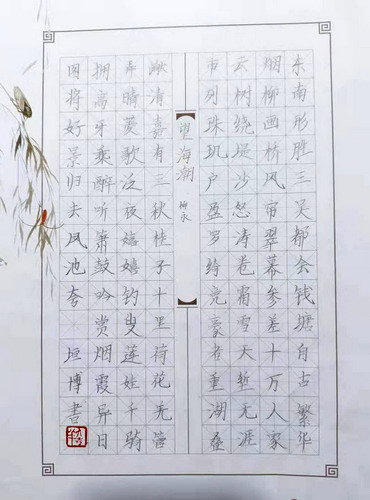 东南形胜三吴都会钱塘自古繁华
烟柳画桥风帘翠幕参差十万人家
云树绕堤沙怒涛卷霜雪天堑无涯
市列珠玑户盈罗绮竞豪奢重湖叠
望海潮 柳永
巘清嘉有三秋桂子十里荷花羌管
弄晴菱歌泛夜嬉嬉钓叟莲娃千骑
拥高牙乘醉听箫鼓吟赏烟霞异日
图将好景归去凤池夸 垣博書